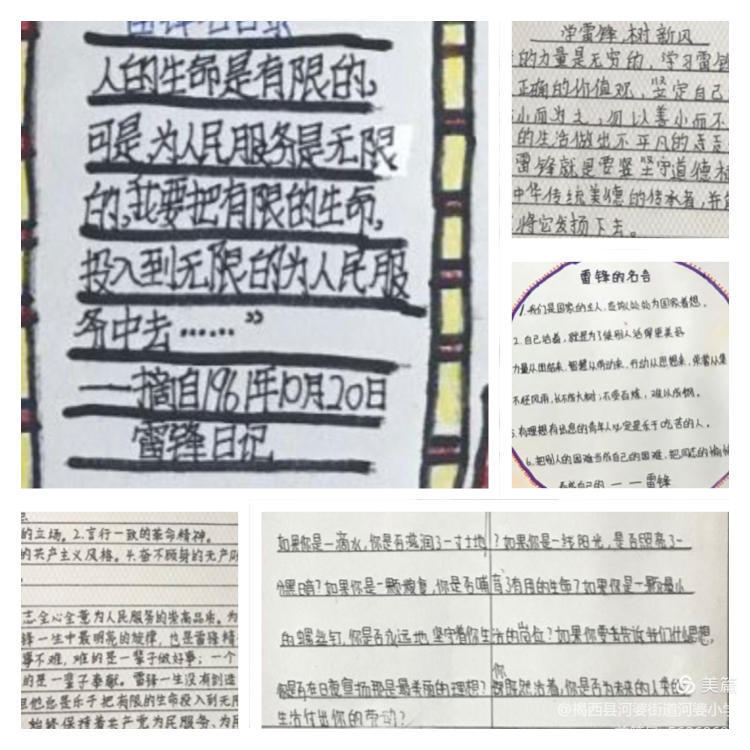 人的生命是有限的，
可是，为人民服务是无限
的，我要把有限的生命，
投入到无限的为人民服
务中去……”
——摘自1961年10月20日
雷锋日记
学雷锋，树新风
的力量是无穷的，学习雷锋
正确的价值观，坚定自己
小而为之，勿以善小而不
的生活做出不平凡的
雷锋就是要坚守道德
中华传统美德的传承者，并
将它发扬下去。
雷锋的名言
1.我们是国家的主人，应该处处为国家着想。
2.自己活着，就是为了使别人活得更美好
力量从团结来，智慧从劳动来，行动从思想来，荣誉从集
不经风雨，长不成大树；不受百炼，难以成钢。
5.有理想有出息的青年人必定是乐于吃苦的人。
6.把别人的困难当成自己的困难，把同志的愉快
看成自己的——雷锋
的立场。2.言行一致的革命精神。
的共产主义风格。4.奋不顾身的无产阶
志全心全意为人民服务的崇高品质。为
锋一生中最明亮的旋律，也是雷锋精
事不难，难的是一辈子做好事；一个
的是一辈子奉献。雷锋一生没有创造
但他总是乐于把有限的生命投入到无限
始终保持着共产党为民服务、为民
如果你是一滴水，你是否滋润了一寸土地？如果你是一线阳光，是否照亮了一
分黑暗？如果你是一颗粮食，你是否哺育了有用的生命？如果你是一颗最小
的螺丝钉，你是否永远地坚守着你生活的岗位？如果你要告诉我们什么思想，
你是否在日夜宣扬那最美丽的理想？你既然活着，你是否为未来的人类的
生活付出你的劳动？
美篇
@揭西县河婆街道河婆小学